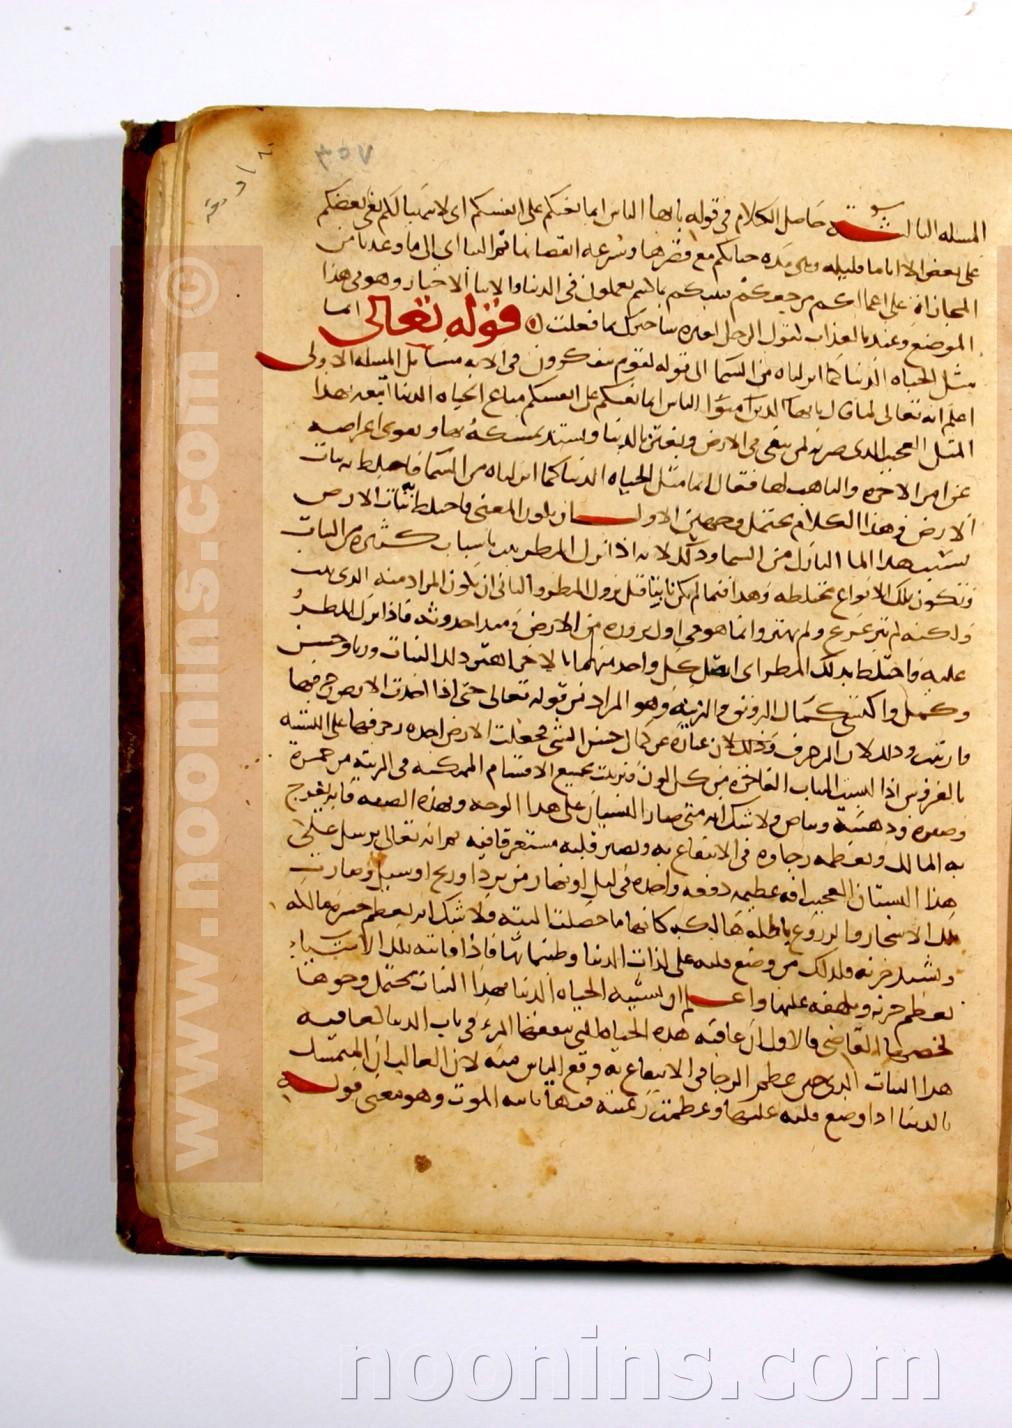 المسله الثالثة حاصل الكلام فى قوله يا ايها الناس انما بغيكم على انفسكم اى لا يتهيا لكم بغى بعضكم
على بعض الا اياما قليله وهى مدة حياتكم مع قصرها وسرعه انقضائها ثم الينا اى الى ما وعدنا من
المجازاة على اعمالكم مرجعكم فننبيكم بما كنتم تعملون فى الدنيا والانبا الاخبار وهو فى هذا
الموضع وعيد بالعذاب كقول الرجل لغيره ساخبرك بما فعلت قوله تعالى انما
مثل الحياه الدنيا كما انزلناه من السما الى قوله لقوم يتفكرون فى الايه مسايل المسله الاولى
اعلم انه تعالى لما قال يا ايها الناس انما بغيكم على انفسكم متاع الحياه الدنيا اتبعه بهذا
المثل العجيب الذى ضربه لمن يبغى فى الارض ويغتر بالدنيا ويشتد تمسكه بها ويقوى اعراضه
عن امر الاخره والتاهب لها فقال انما مثل الحياه الدنيا كما انزلناه من السما فاختلط به نبات
الارض وهذا الكلام يحتمل وجهين الاول ان يكون المعنى فاختلط به نبات الارض
بسبب هذا الما النازل من السما وذلك لانه اذا نزل المطر ينبت باسباب كثيره من النبات
وتكون تلك الانواع مختلطه وهذا فيما لم يكن نابتا قبل نزول المطر والثانى ان يكون المراد منه الذى نبت
ولكنه لم يترعرع ولم يهتز وانما هو فى اول بروزه من الارض ومبدا حدوثه فاذا نزل المطر
عليه واختلط بذلك المطر اى اتصل كل واحد منهما بالاخر اهتز ذلك النبات وربا وحسن
وكمل واكتسى كمال الرونق والزينه وهو المراد من قوله تعالى حتى اذا اخذت الارض زخرفها
وازينت وذلك لان الزخرف عبارة عن كمال حسن الشى فجعلت الارض اخذه زخرفها على التشبيه
بالعروس اذا لبست الثياب الفاخرة من كل لون وتزينت بجميع الاقسام الممكنه فى الزينه من حمرة
وصفره وذهبيه وبياض ولا شك انه متى صار البستان على هذا الوجه وبهذه الصفه فانه يفرح
به المالك ويعظم رجاوه فى الانتفاع به ويصير قلبه مستغرقا فيه ثم انه تعالى يرسل على
هذا البستان العجيب افه عظيمه دفعه واحده فى ليل او نهار من برد او ريح او سيل وصارت
تلك الاشجار والزروع باطله هالكه كانها ما حصلت البته ولا شك انه يعظم حسره مالكه
ويشتد حزنه فكذلك من وضع قلبه على لذات الدنيا وطيباتها فاذا فاتته تلك الاشياء
يعظم حزنه وتلهفه عليها واعلم ان تشبيه الحياه الدنيا بهذا النبات يحتمل وجوها
لخصها القاضى فالاول ان عاقبه هذه الحياه التى ينفقها المرء فى باب الدنيا كعاقبه
هذا النبات الذى حين عظم الرجا فى الانتفاع به وقع الياس منه لان الغالب ان المتمسك
بالدنيا اذا وضع قلبه عليها وعظمت رغبته فيها ياتيه الموت وهو معنى قوله
www.noonins.com ©
noonins.com